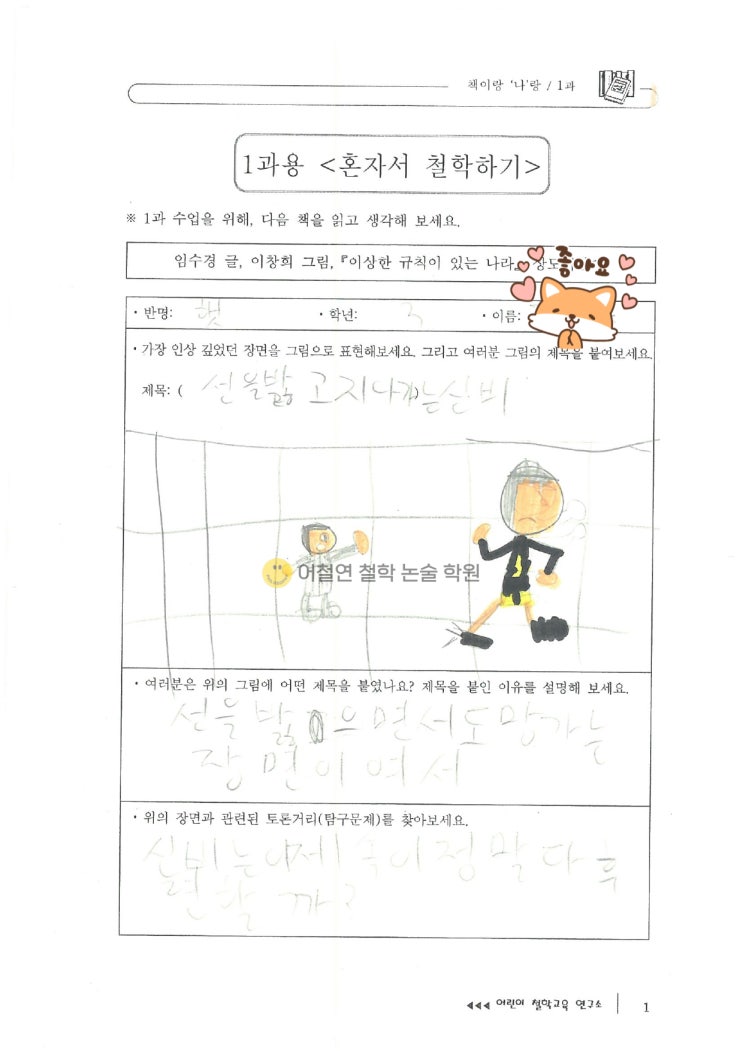 책이랑 '나'랑 / 1과
1과용 <혼자서 철학하기>
※ 1과 수업을 위해, 다음 책을 읽고 생각해 보세요.
임수경 글, 이창희 그림, 『이상한 규칙이 있는 나라』, 상도
좋아요
· 반명: 햇 · 학년: · 이름:
· 가장 인상 깊었던 장면을 그림으로 표현해보세요. 그리고 여러분 그림의 제목을 붙여보세요.
제목: ( 선을밟고지나가는실비
어철연 철학 논술 학원
· 여러분은 위의 그림에 어떤 제목을 붙였나요? 제목을 붙인 이유를 설명해 보세요.
선을 밟으면서도망가는
장면이여서
· 위의 장면과 관련된 토론거리(탐구문제)를 찾아보세요.
실비는이제 속이정말다후
련할까?
◀◀◀ 어린이 철학교육 연구소 1